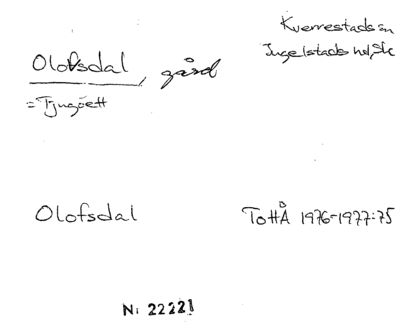 Kverrestads sn
Ingelstads hd, Sk
Olofsdal, gård
= Tjugoett
Olofsdal
ToHÅ 1976-1977:75
N: 22221